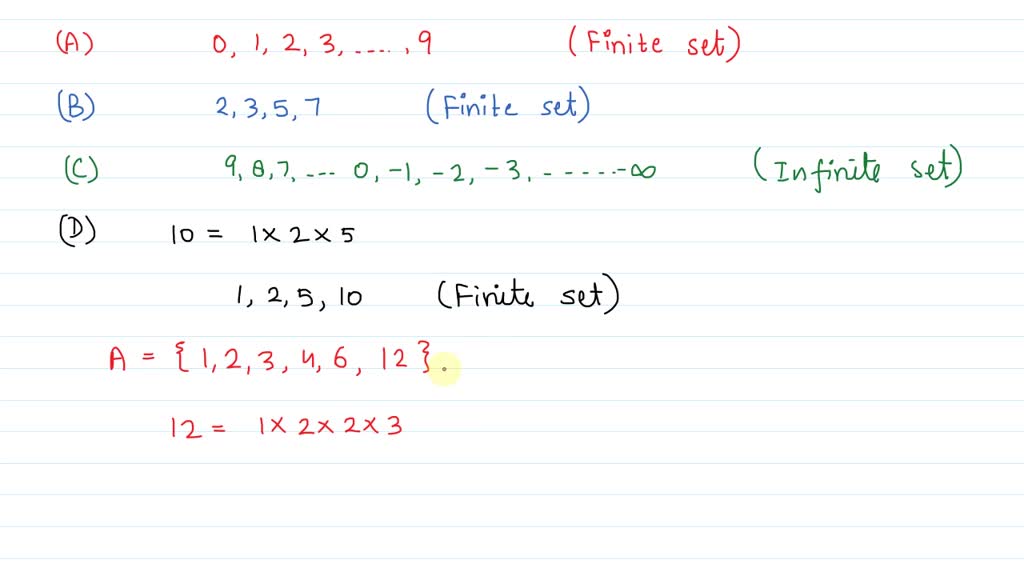 (A) 0, 1, 2, 3, ...., 9 (Finite set)
(B) 2, 3, 5, 7 (Finite set)
(C) 9, 8, 7, ... 0, -1, -2, -3, ......-∞ (Infinite set)
(D) 10 = 1 × 2 × 5
1, 2, 5, 10 (Finite set)
A = {1, 2, 3, 4, 6, 12}.
12 = 1 × 2 × 2 × 3